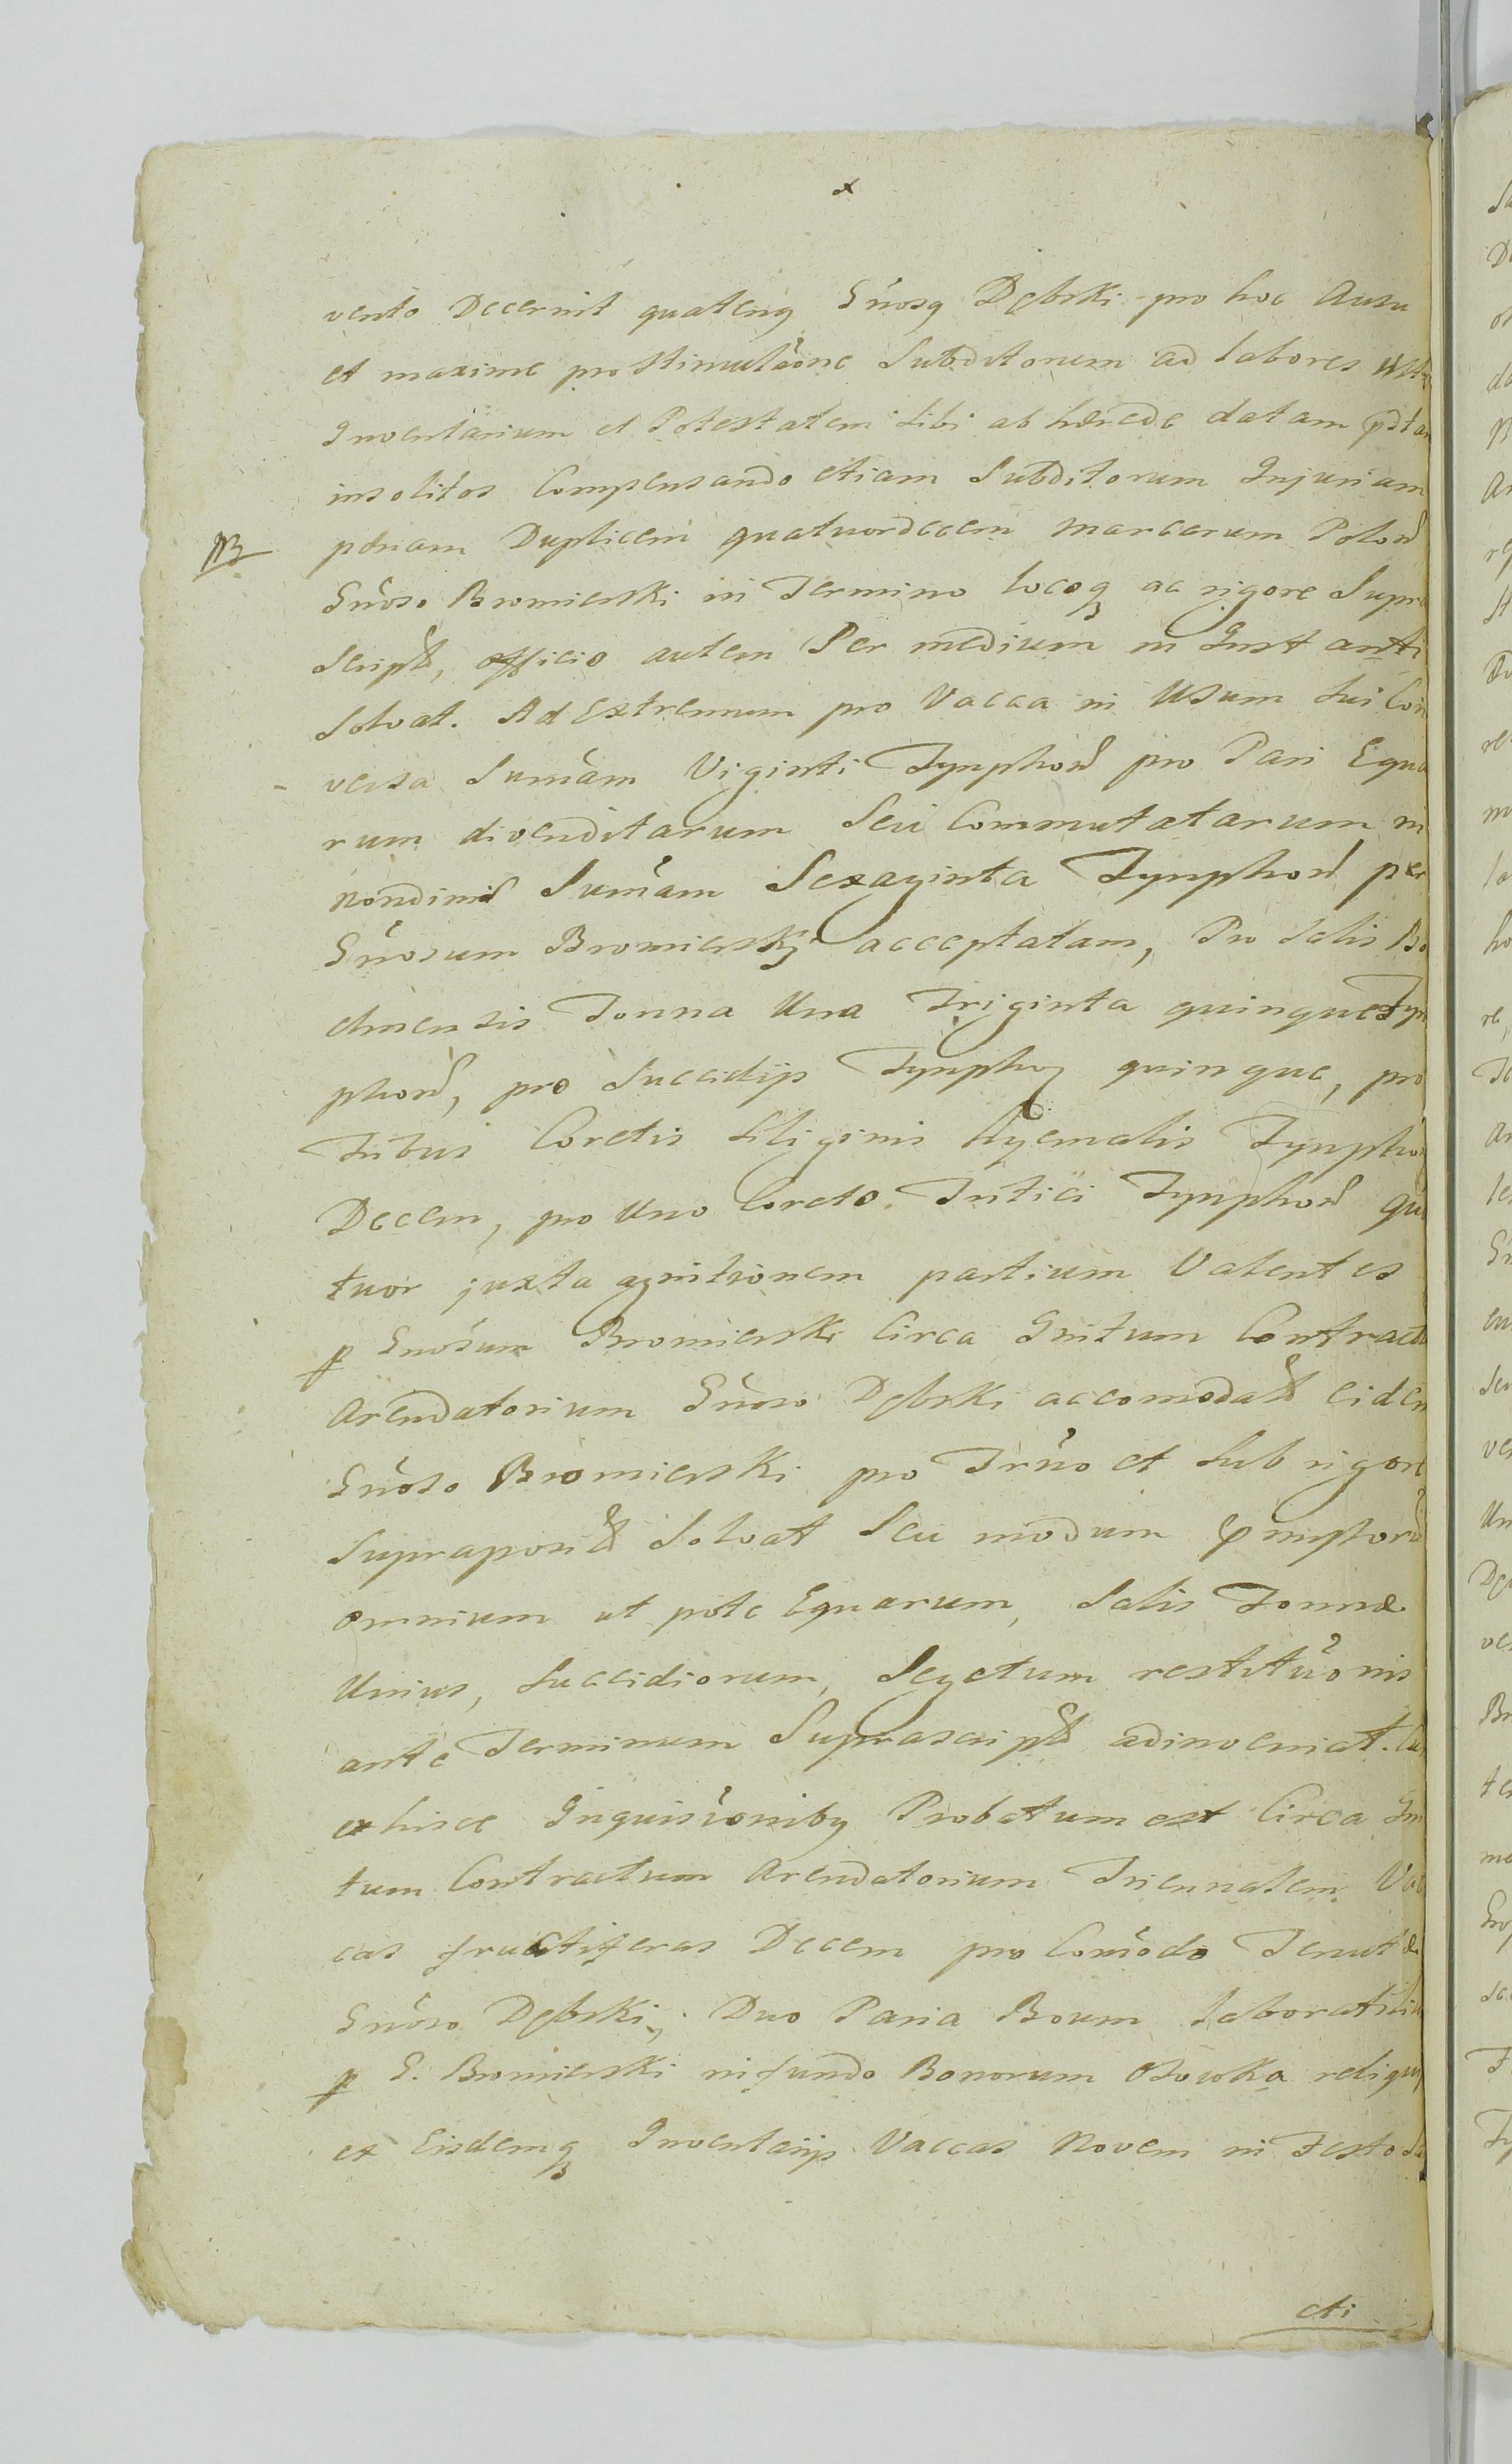 vento Decernit quatenq Gnosq Dębski pro hoc Ausu
et maxime pro stimulaone Subditorum ad labores
Inventarium et Potestatem Sibi ab hærede datam
insolitos Compensando etiam Subditorum Injuriam
NB pænam Duplicem quatuordecem marcarum Polon
Gnoso Bromierski in Termino locoq ac rigore Supra
Script, officio autem Per medium in Instanti
Solvat. Ad Extremum pro Vacca in Usum Sui Con
versa Sumam Viginti Tynphon pro Pari Equa
rum divenditarum Seu Commutatarum in
Nondinis Sumam Sexaginta Tynphon per
Gnosum Bromierski acceptatam, Pro Salis Bo
chnensis Tonna Una Triginta quinque Tyn
phon, pro Succidijs Tynphoq quinque, pro
Tribus Coretis Siliginis Hyemalis Tynphon
Decem, pro Uno Coreto Tritici Tynphon qua
tuor juxta agnitionem partium Valentes
p Gnosum Bromierski Circa Initum Contractu
Arendatorium Gnoso Dębski accomodat eidem
Gnoso Bromierski pro Trno et Sub rigore
Supraposit Solvat Seu modum
omnium ut pote Equarum, Salis Tonnæ
Unius, Succidiorum, Segetum restituonis
ante Terminum Suprascript adinveniat.
ex hisce Inquisioniby Probatum est Circa Ini
tum Contractum Arendatorium Triennalem Vac
cas fructiferas Decem pro Comodo Tenutæ
Gnoso Dębski, Duo Paria Boum laboratiliu
p G. Bromierski in fundo Bonorum Osowka
ex Eisdemq Inventarijs Vaccas Novem in Festo
cti